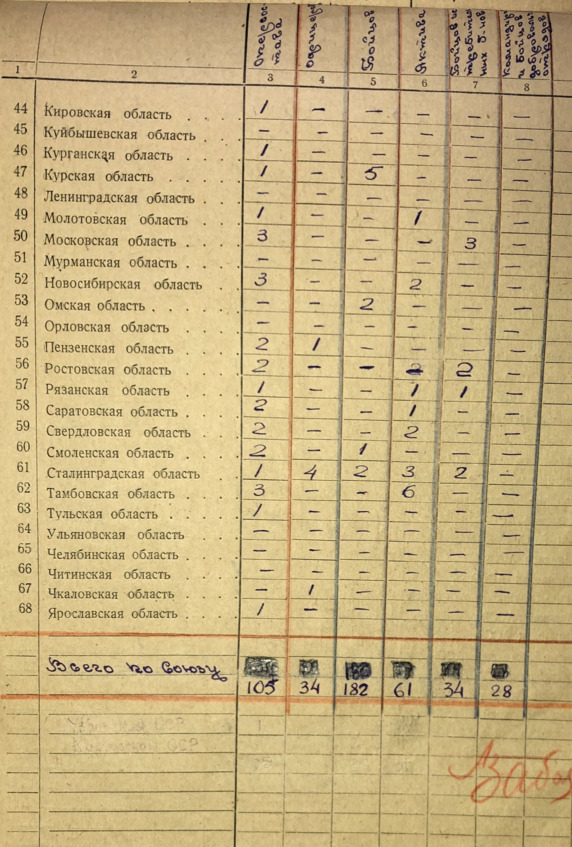 Офицеров
Бойцов
Актива
Бойцов и
Командиров
и Бойцов
отрядов
1 2 3 4 5 6 7 8
44 Кировская область . . . . 1 — — — — —
45 Куйбышевская область . . . — — — — — —
46 Курганская область . . . . 1 — — — — —
47 Курская область . . . . . 1 — 5 — — —
48 Ленинградская область . . . — — — — — —
49 Молотовская область . . . . 1 — — 1 — —
50 Московская область . . . . 3 — — — 3 —
51 Мурманская область . . . . — — — — — —
52 Новосибирская область . . . 3 — — 2 — —
53 Омская область . . . . . — — 2 — — —
54 Орловская область . . . . — — — — — —
55 Пензенская область . . . . 2 1 — — — —
56 Ростовская область . . . . 2 — — 2 —
57 Рязанская область . . . . 1 — — 1 1 —
58 Саратовская область . . . . 2 — — 1 — —
59 Свердловская область . . . 2 — — 2 — —
60 Смоленская область . . . . 2 — 1 — — —
61 Сталинградская область . . . 1 4 2 3 2 —
62 Тамбовская область . . . . 3 — — 6 — —
63 Тульская область . . . . . 1 — — — — —
64 Ульяновская область . . . . — — — — — —
65 Челябинская область . . . . — — — — — —
66 Читинская область . . . . — — — — — —
67 Чкаловская область . . . . — 1 — — — —
68 Ярославская область . . . . 1 — — — — —
Всего по Союзу
105 34 182 61 34 28